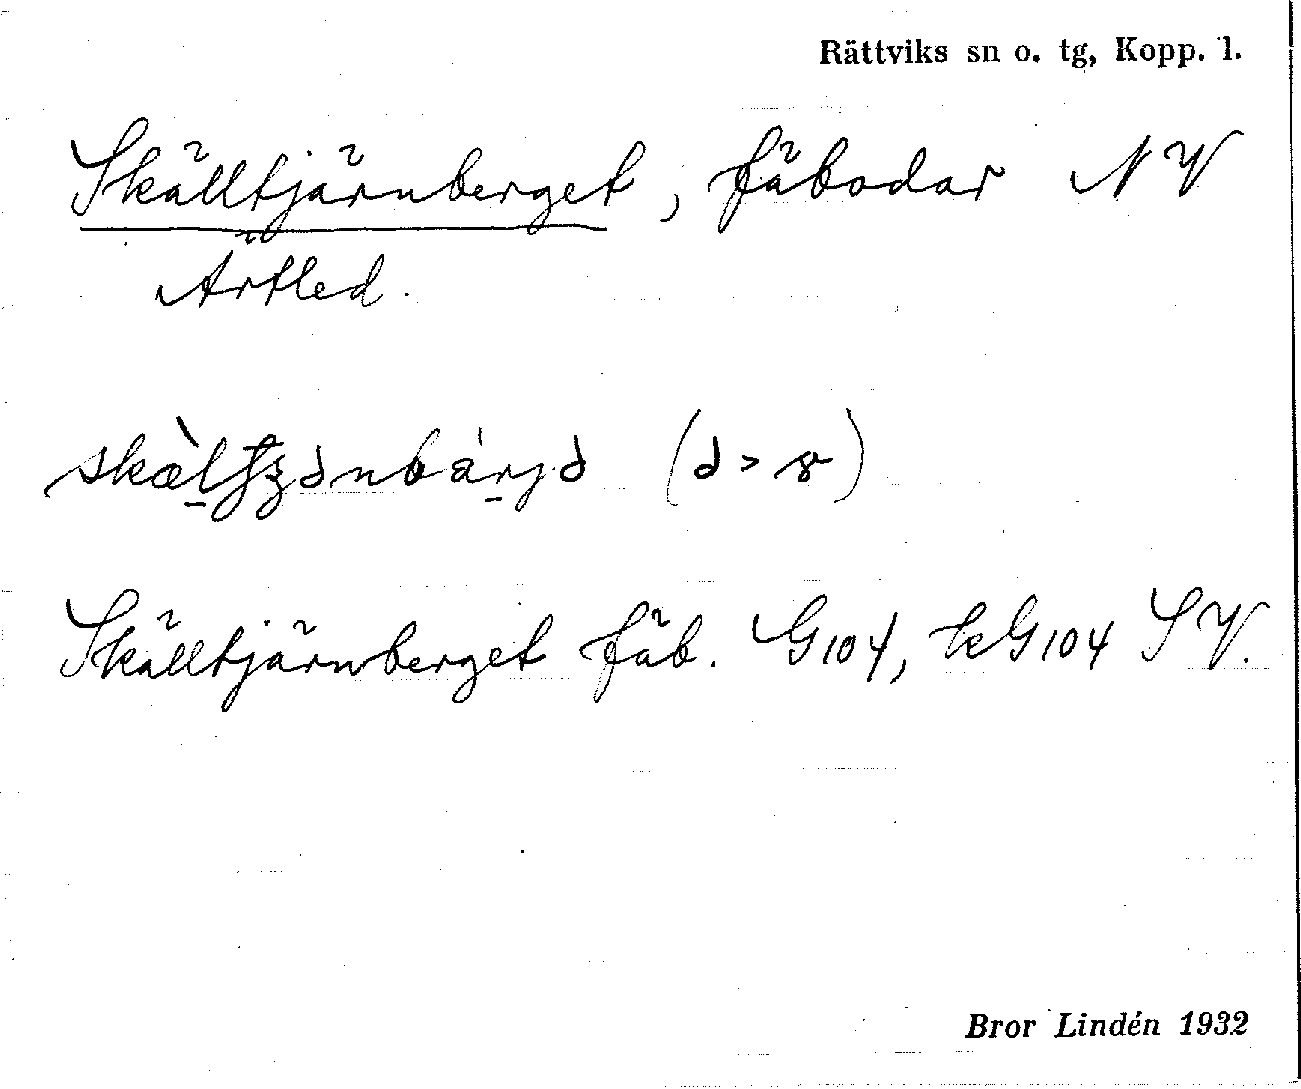 Rättviks sn o. tg, Kopp. l.
Skälltjärnberget, fäbodar NV
Ärtled.
(ə > ɤ)
Skälltjärnberget fäb. G104, kG104 SV.
Bror Lindén 1932